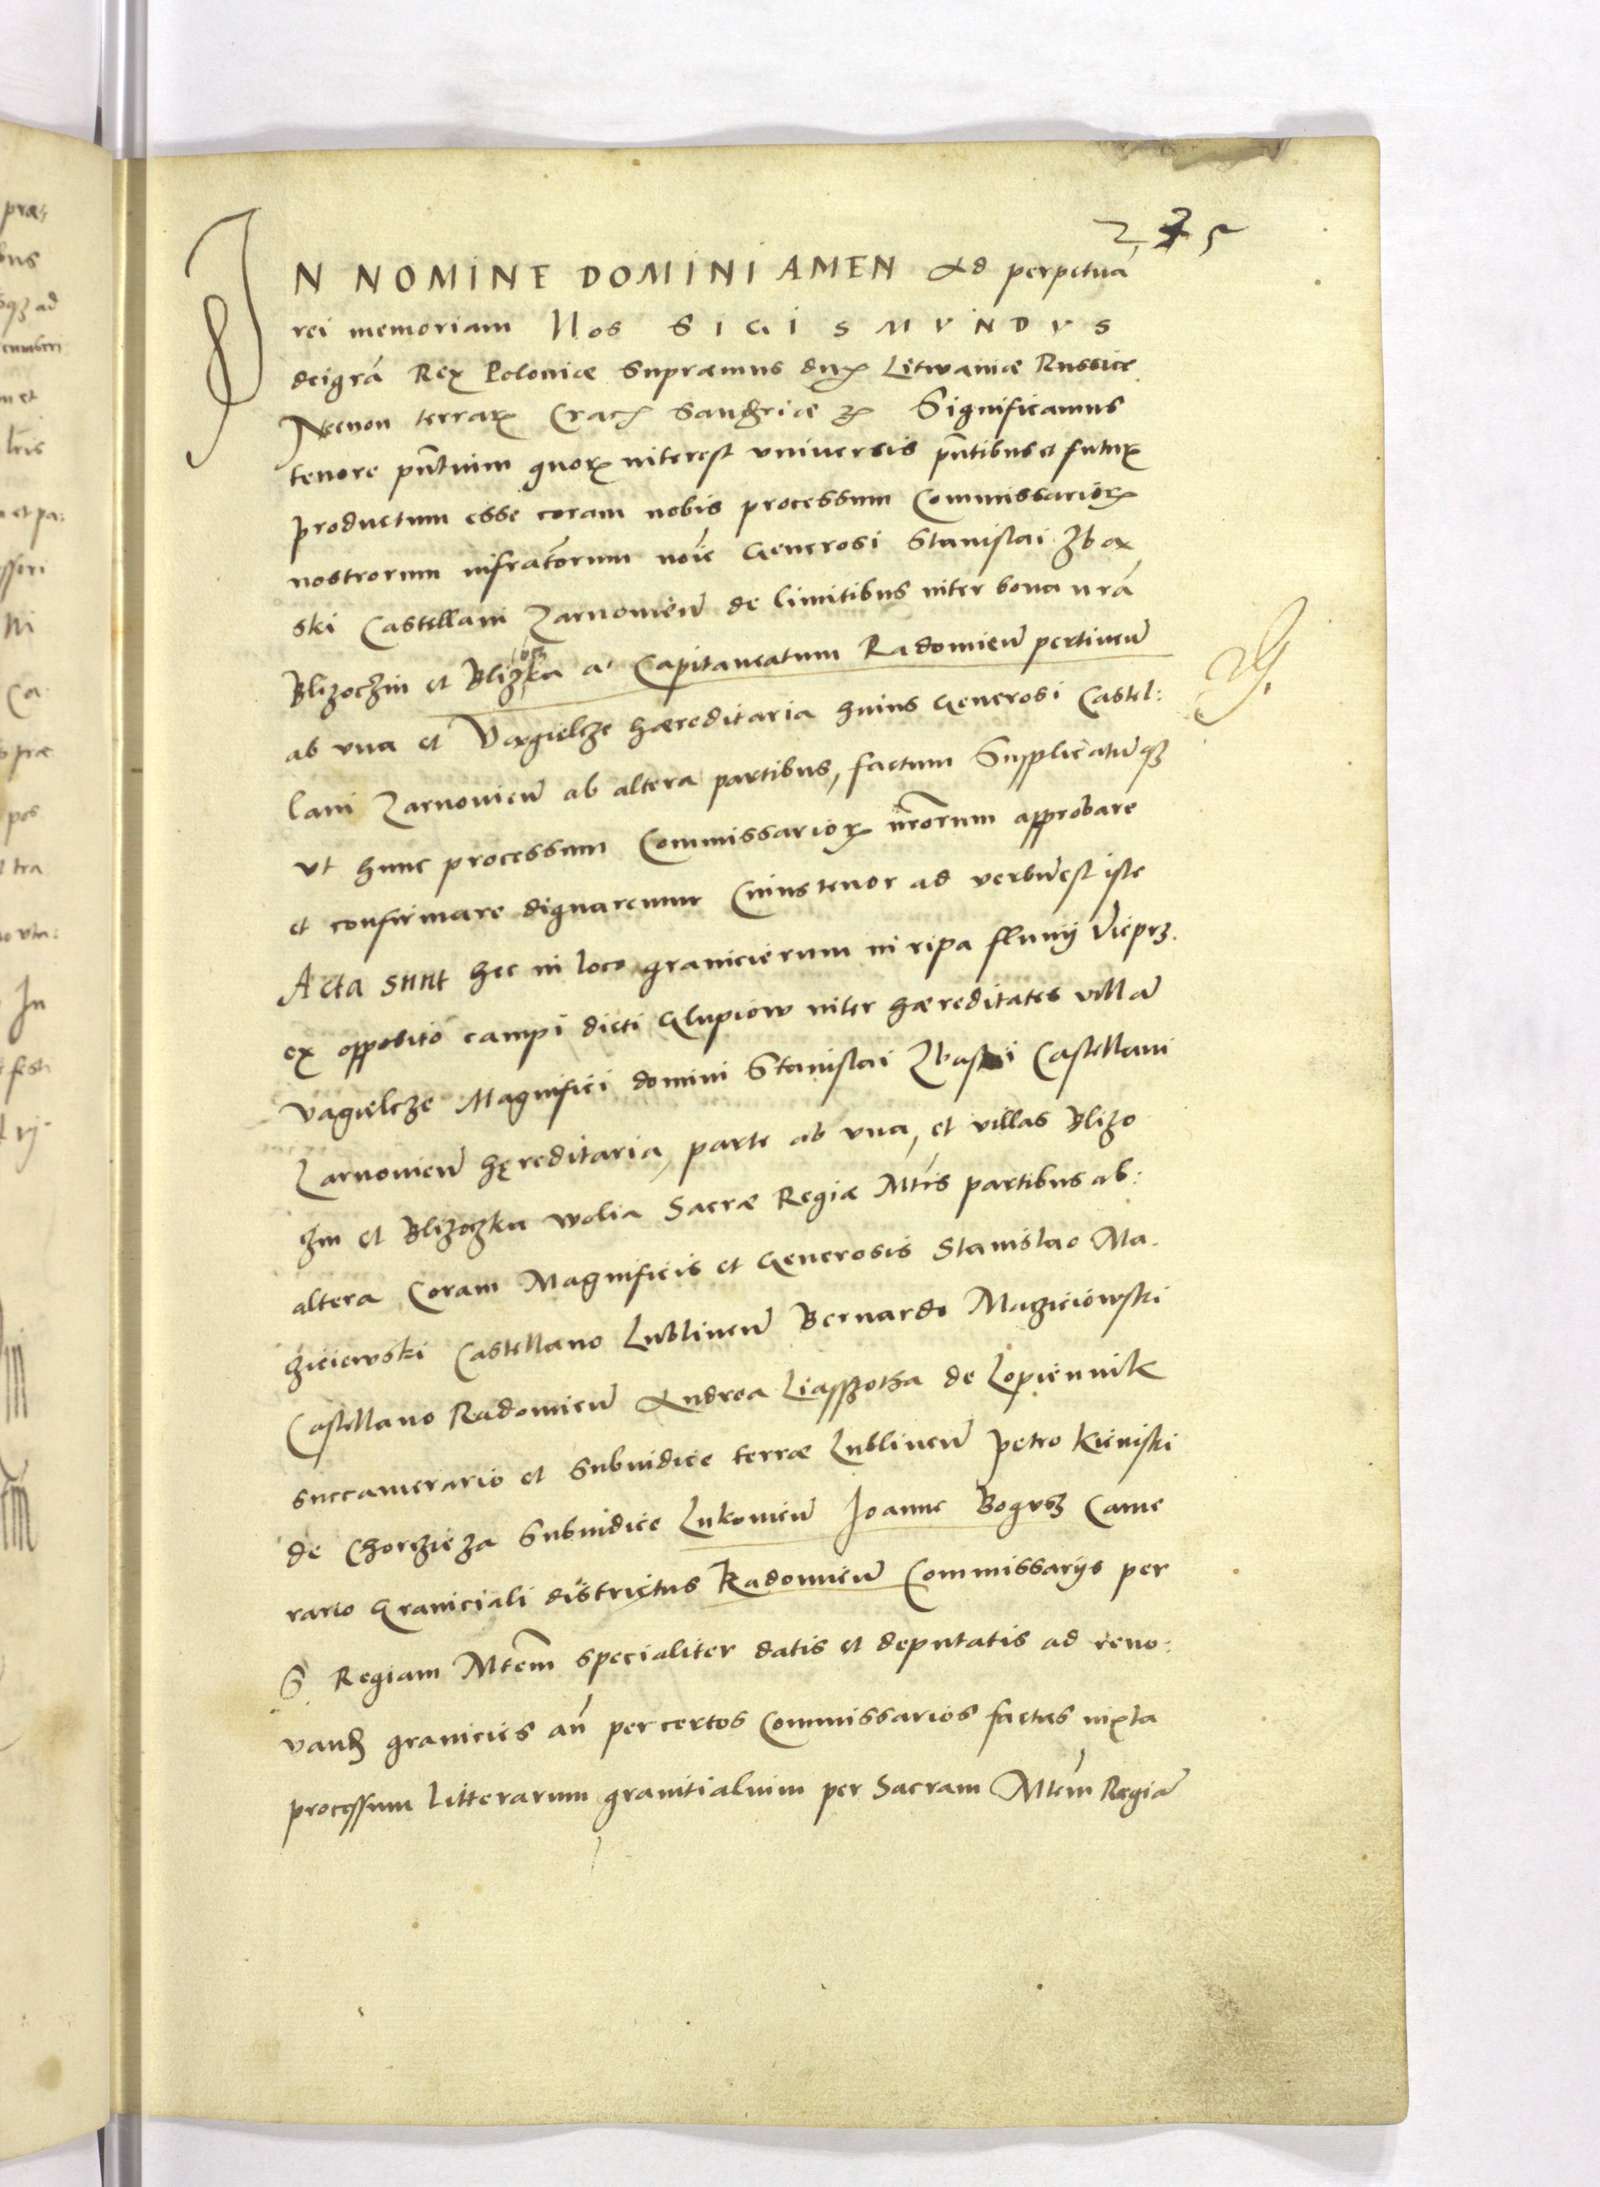 235
IN NOMINE DOMINI AMEN Ad perpetuā
rei memoriam Nos SIGISMVNDVS
deigrā Rex Poloniæ Supræmus dux Litwaniæ Russiæ
Necnon terrar Crac Sandriæ Significamus
tenore pñtium quor interest vniversis pñtibus et futur
productum esse coram nobis processum Commissarior
nostrorum infratōrum noīe Generosi Stanislai Zbąx
ski Castellani Zarnovieñ de limitibus inter bona nrā
Blizoczin et Blizka ad Capitaneatum Radomieñ pertineñ
ab vna et Vagielcze hæreditaria huius Generosi Castel:
lani Zarnovieñ ab altera partibus, factum Supplicatūqz
vt hunc processum Commissarior nrōrum approbare
et confirmare dignaremur Cuius tenor ad verbū est iste
Acta sunt hec in loco granicierum in ripa fluvij Vieprz.
ex opposito campi dicti Glupiow inter hæreditates villā
Vagielcze Magnifici domini Stanislai Zbaski Castellani
Zarnovieñ hęreditaria, parte ab vna, et villas Blizo
czin et Blizoczka wolia Sacræ Regiæ Mtis partibus ab:
altera Coram Magnificis et Generosis Stanislao Ma.
cieiewski Castellano Lublineñ Bernardo Macziéiowski
Castellano Radomieñ Andrea Liasszotha de Lopiennik
succamerario et Subiudice terræ Lublineñ Petro Kieniski
de Chorzieza Subiudice Lukovieñ Joanne Bogusz Came
rario Graniciali districtus Radomieñ Commissarijs per
S. Regiam Mtem specialiter datis et deputatis ad reno:
vand granicies añ per certos Commissarios factas iuxta
processum litterarum granitialium per Sacram Mtem Regiā